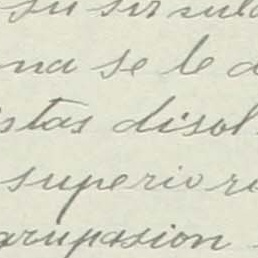 su sir
na se le d
istas disol
superior
arupasion